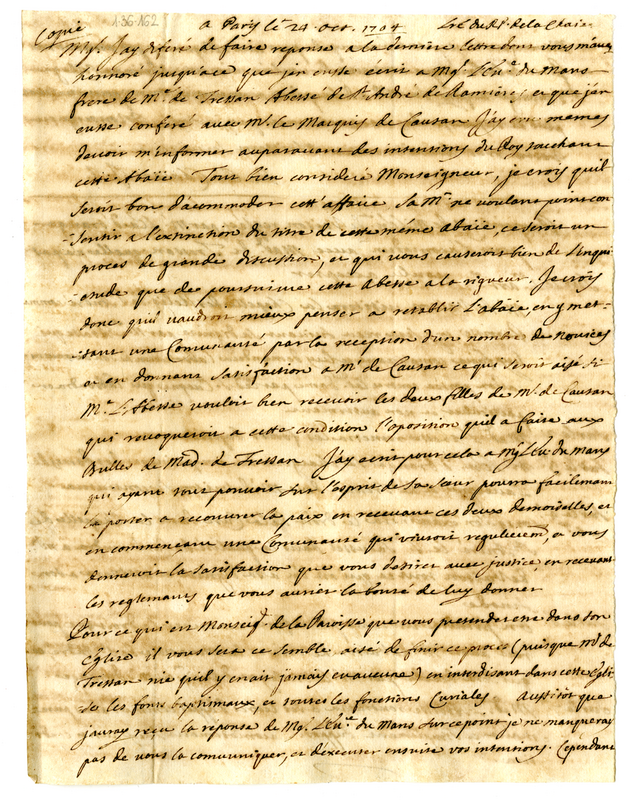 1.36.162
Copie a Paris le 24. oct. 1704 Let. du R. P. de la Chaise
Mgr. Jay diferé de faire reponse a la derniere lettre dont vous m'avez
honnoré jusqu'ace que j'en eusse écrit a Mgr. L'Ev. du Mans
frere de Me. de Tressan Abesse de St. André de Ramieres, et que j'en
eusse conferé avec Mr. le Marquis de Causan J'ay cru memes
devoir m'informer auparavant des intentions du Roy touchant
cette Abaïe Tout bien consideré Monseigneur, je crois quil
seroit bon dacommoder cett affaire sa Mté. ne voulant point con
-sentir a l'extinction du titre de cette même abaïe, ce seroit un
proces de grande discussion, et qui vous causeroit bien de l'inqui
-etude que de poursuivre cette Abesse a la rigueur. Je crois
donc quil vaudroit mieux penser a retablir l'abaïe, en y met-
-tant une Comunauté par la reception d'un nombre de novices
et en donnant satisfaction a Mr. de Causan ce qui seroit aisé si
Me. L'Abesse vouloit bien recevoir les deux filles de Mr. de Causan
qui revoqueroit a cette condition l'oposition quil a faite aux
Bulles de Mad. de Tressan J'ay ecrit pour cela a Mgr. L'Ev. du Mans
qui ayant tout pouvoir sur l'esprit de sa sœur pourra facilemant
la porter a recouvrer la paix en recevant ces deux demoiselles, et
en commenceant une Comunauté qui vivroit regulierem. et vous
donneroit la satisfaction que vous desirez avec justice, en recevant
les reglemants que vous auriez la bonté de luy donner
Pour ce qui est Monseig. de la Paroisse que vous pretendez etre dans son
église il vous sera ce semble aisé de finir ce proces (puisque Me. de
Tressan nie quil y en ait jamais eu aucune) en interdisant dans cette égli
-se les fonts baptismaux, et toutes les fonctions Curiales. Aussitôt que
j'auray reçu la reponse de Mgr. L'Ev. du Mans sur ce point je ne manqueray
pas de vous la comuniquer, et d'executer ensuite vos intentions. Cependant